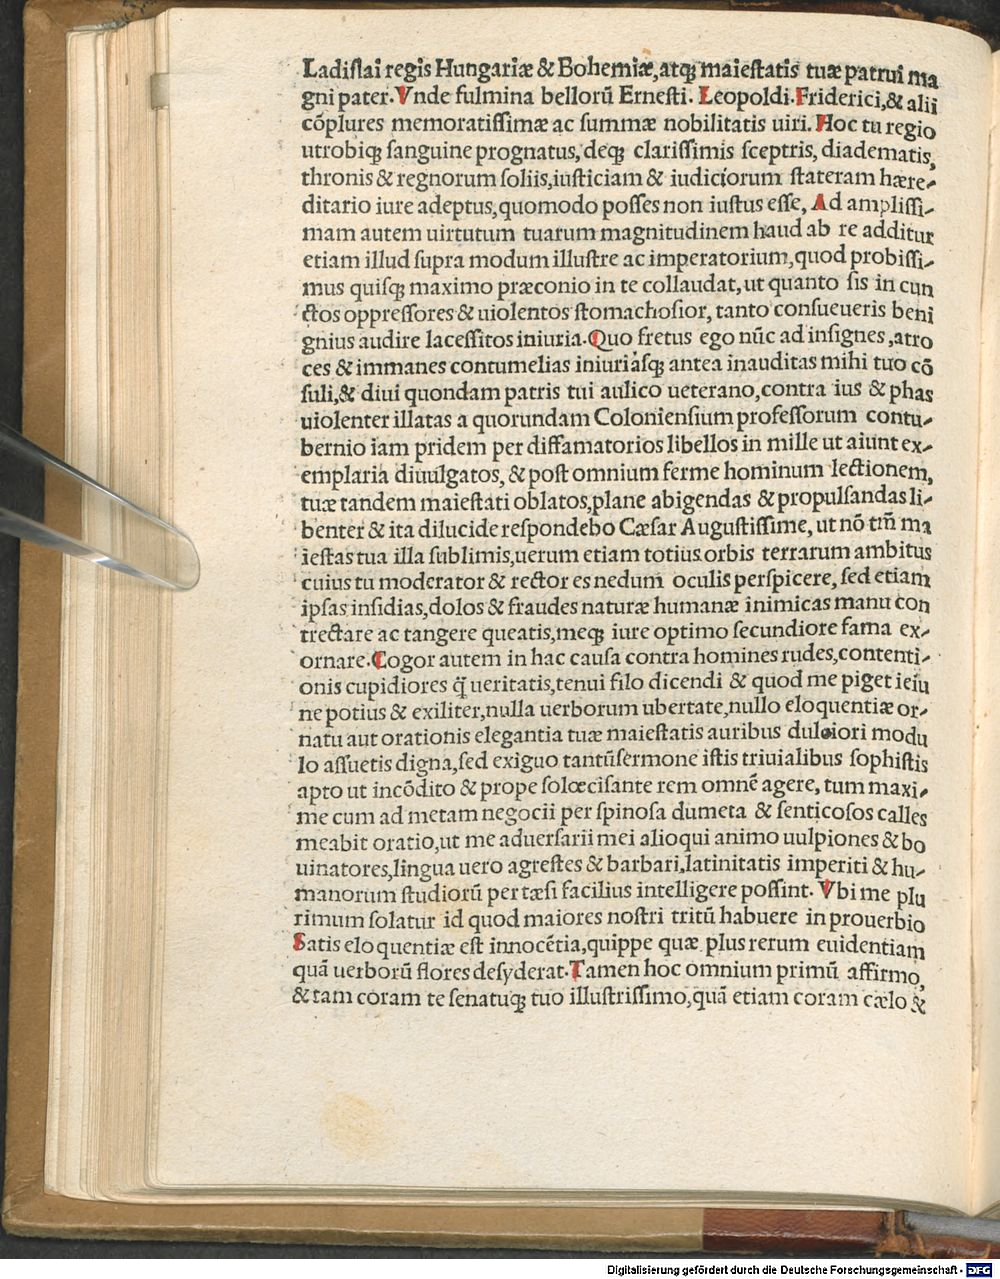 Ladiſlai regis Hungariæ & Bohemiæ, atq; maieſtatis tuæ patrui ma
gni pater. Vnde fulmina bellorũ Erneſti. Leopoldi. Friderici, & alii
cõplures memoratiſſimæ ac ſummæ nobilitatis uiri. Hoc tu regio
utrobiq; ſanguine prognatus, deq; clariſſimis ſceptris, diadematis,
thronis & regnorum ſoliis, iuſticiam & iudiciorum ſtateram hære-
ditario iure adeptus, quomodo poſſes non iuſtus eſſe, Ad ampliſſi-
mam autem uirtutum tuarum magnitudinem haud ab re additur
etiam illud ſupra modum illuſtre ac imperatorium, quod probiſſi-
mus quiſq; maximo præconio in te collaudat, ut quanto ſis in cun
ctos oppreſſores & uiolentos ſtomachoſior, tanto conſueueris beni
gnius audire laceſſitos iniuria. Quo fretus ego nũc ad inſignes, atro
ces & immanes contumelias iniuriaſq; antea inauditas mihi tuo cõ
ſuli, & diui quondam patris tui aulico ueterano, contra ius & phas
uiolenter illatas a quorundam Colonienſium profeſſorum contu-
bernio iam pridem per diffamatorios libellos in mille ut aiunt ex-
emplaria diuulgatos, & poſt omnium ferme hominum lectionem,
tuæ tandem maieſtati oblatos, plane abigendas & propulſandas li-
benter & ita dilucide reſpondebo Cæſar Auguſtiſſime, ut nõ tm̃ ma
ieſtas tua illa ſublimis, uerum etiam totius orbis terrarum ambitus
cuius tu moderator & rector es nedum oculis perſpicere, ſed etiam
ipſas inſidias, dolos & fraudes naturæ humanæ inimicas manu con
trectare ac tangere queatis, meq; iure optimo ſecundiore fama ex-
ornare. Cogor autem in hac cauſa contra homines rudes, contenti-
onis cupidiores q̃ ueritatis, tenui filo dicendi & quod me piget ieiu
ne potius & exiliter, nulla uerborum ubertate, nullo eloquentiæ or-
natu aut orationis elegantia tuæ maieſtatis auribus dulciori modu
lo aſſuetis digna, ſed exiguo tantũ ſermone iſtis triuialibus ſophiſtis
apto ut incõdito & prope ſolœciſante rem omnẽ agere, tum maxi-
me cum ad metam negocii per ſpinoſa dumeta & ſenticoſos calles
meabit oratio, ut me aduerſarii mei alioqui animo uulpiones & bo
uinatores, lingua uero agreſtes & barbari, latinitatis imperiti & hu-
manorum ſtudiorũ pertæſi facilius intelligere poſſint. Vbi me plu
rimum ſolatur id quod maiores noſtri tritũ habuere in prouerbio
Satis eloquentiæ eſt innocẽtia, quippe quæ plus rerum euidentiam
quã uerborũ flores deſyderat. Tamen hoc omnium primũ affirmo,
& tam coram te ſenatuq; tuo illuſtriſſimo, quã etiam coram cælo &
Digitalisierung gefördert durch die Deutsche Forschungsgemeinschaft - DFG